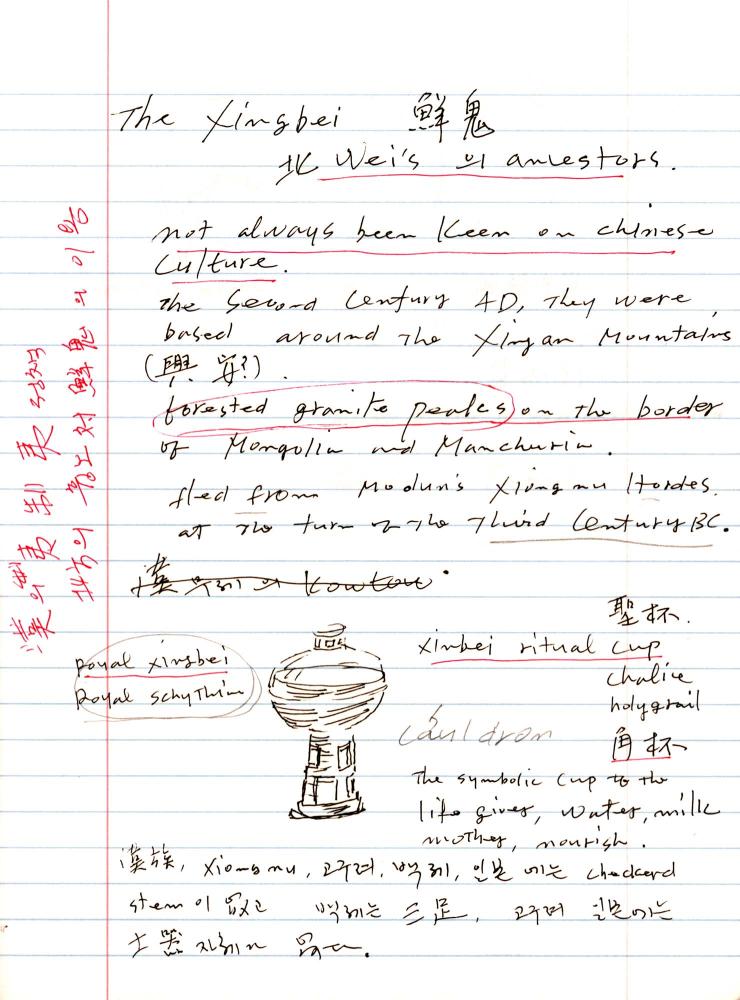 The Xingbei 鮮鬼
北 Wei's 의 ancestors.
not always been keen on chinese
culture.
the second century AD, they were
based around the Xingan Mountains
(興 安?).
forested granite peaks on the border
of Mongolia and Manchuria.
fled from Modun's Xiongnu Hordes.
at the turn of the third century BC.
漢 의 kowtow.
漢의 以夷制夷 정책
의 对 鮮鬼 의 이용
royal xingbei
Royal schythian
聖杯.
xinbei ritual cup
chalice
holygrail
cauldron
角杯
The symbolic cup to the
life giver, water, milk
mother, nourish.
漢族, Xiongnu, 고구려, 백제, 일본 에는 checkerd
stem이 없고 백제는 三足, 고구려 일본에는
土器 자체가 없다.